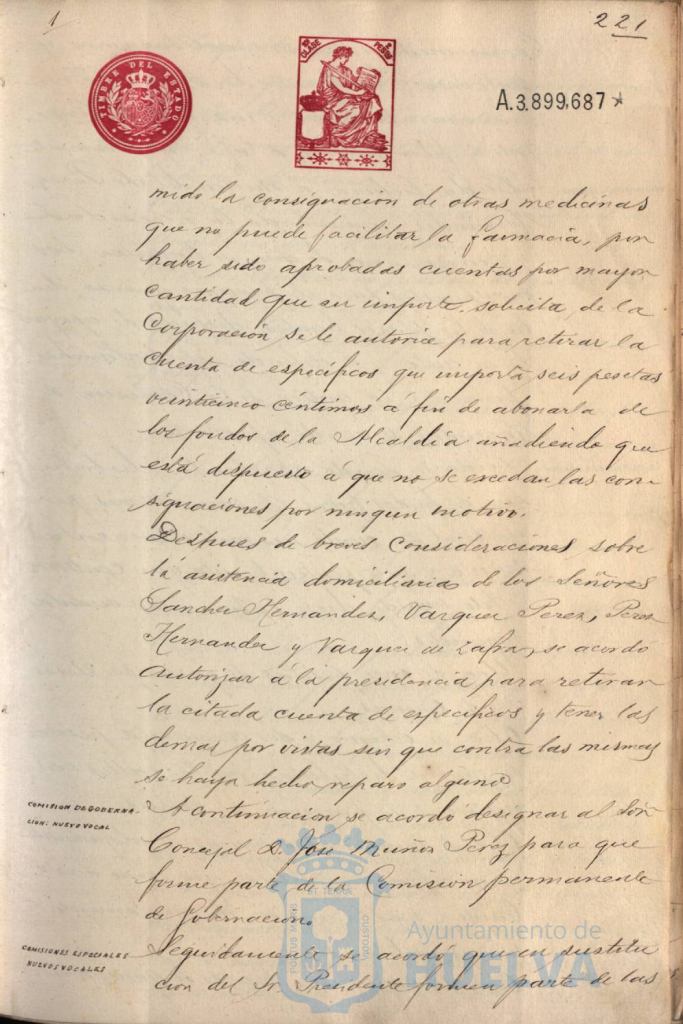 1
221
TIMBRE DEL ESTADO
CLASE
PESETAS
A.3.899,687
mido la consignacion de otras medicinas
que no puede facilitar la farmacia, por
haber sido aprobadas cuentas por mayor
cantidad que su importe, solicita de la
Corporación se le autorice para retirar la
cuenta de específicos que importa seis pesetas
veinticinco céntimos á fin de abonarla de
los fondos de la Alcaldía añadiendo que
está dispuesto á que no se excedan las con-
signaciones por ningun motivo.
Despues de breves consideraciones sobre
la asistencia domiciliaria de los Señores
Sanchez Hernandez, Vazquez Perez, Perez
Hernandez y Vazquez de Zafra, se acordó
autorizar á la presidencia para retirar
la citada cuenta de específicos y tener las
demas por vistas sin que contra las mismas
se haya hecho reparo alguno
COMISION DE GOBERNA-
CION: NUEVO VOCAL
A continuacion se acordó designar al Señ
Concejal D. José Muñoz Perez para que
forme parte de la Comision permanente
de Gobernacion.
COMISIONES ESPECIALES
NUEVOS VOCALES
Seguidamente se acordó que en sustitu
cion del Sr. Presidente formen parte de las
PORTUS MARIS ET TERRAE CUSTODIA
Ayuntamiento de
HUELVA